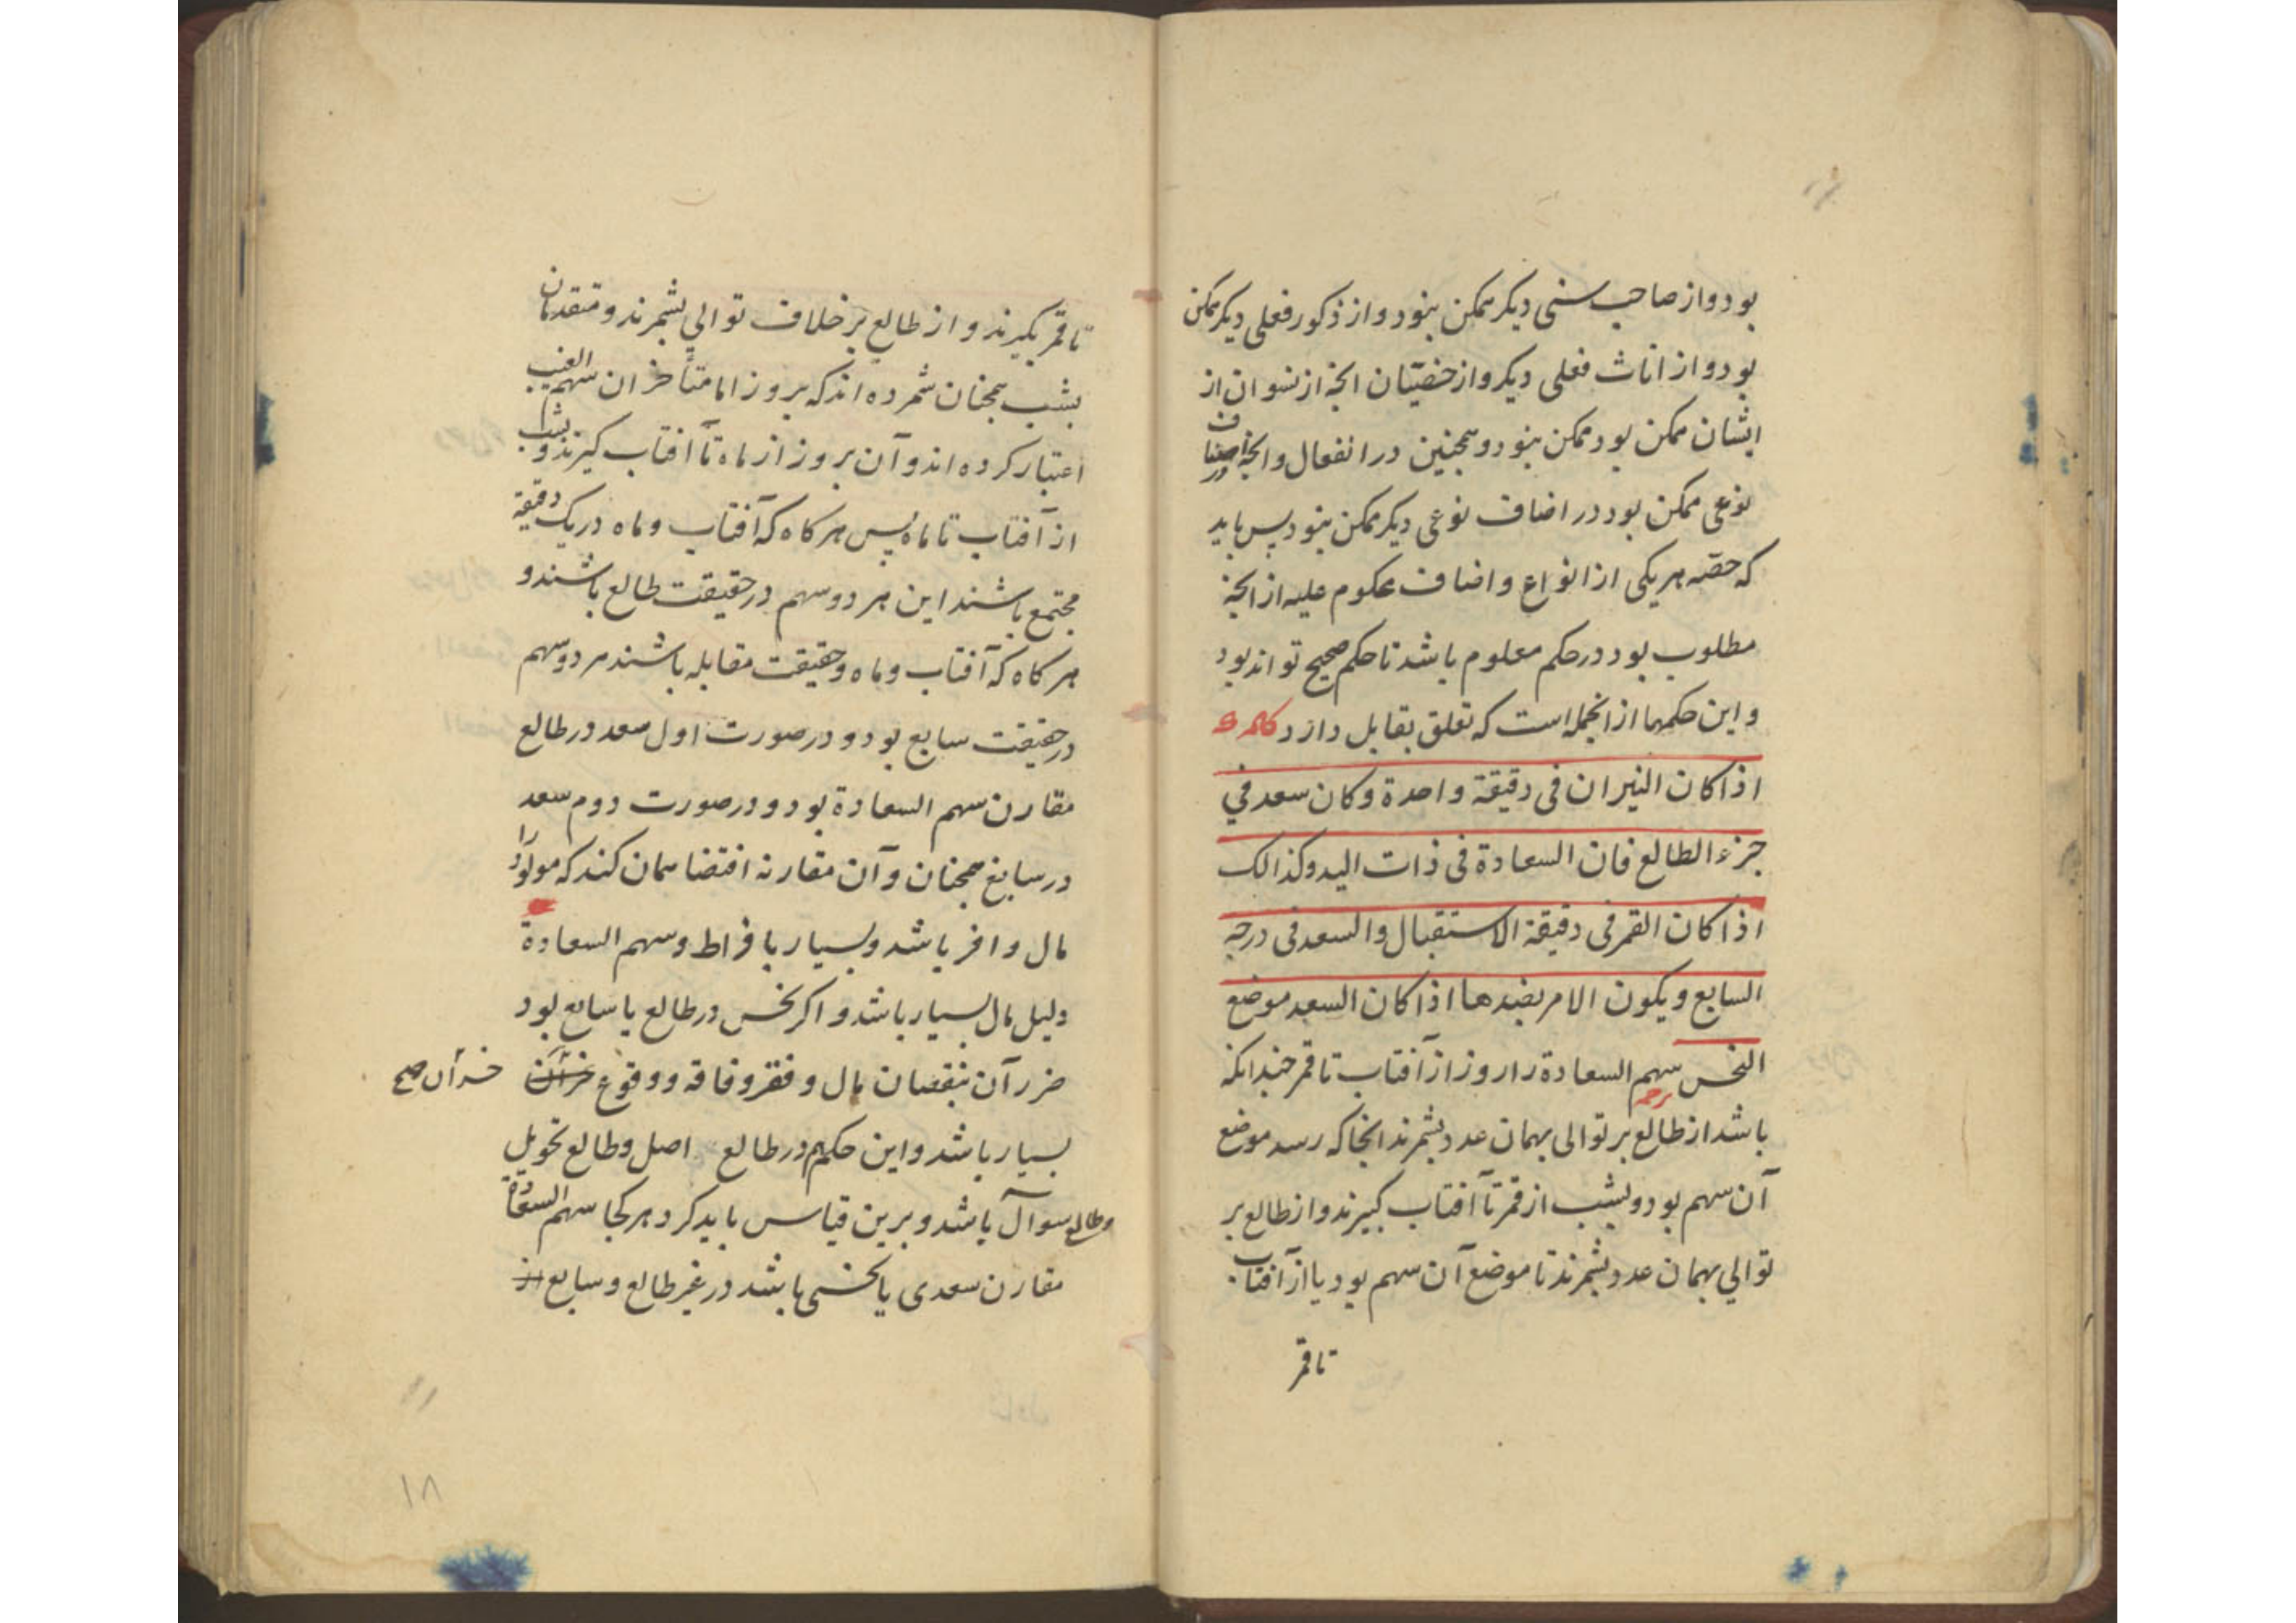 بود و از صاحب سنی دیکر ممکن نبود و از ذکور فعلی دیکر ممکن
بود و از اناث فعلی دیکر و از خصیّان انچه از نسوان از
ایشان ممکن بود ممکن نبود و همچنین در انفعال و انچه در اصناف
نوعی ممکن بود در اضاف نوعی دیکر ممکن نبود پس باید
که حصّه هر یکی از انواع و اضاف محکوم علیه از انچه
مطلوب بود در حکم معلوم باشد تا حکم صحیح تواند بود
و این حکمها از انجمله است که تعلق بقابل دارد کلمه
اذا کان النیران فی دقیقة واحدة وکان سعد في
جزء الطالع فان السعادة فی ذات الید وکذالک
اذا کان القمر فی دقیقة الاستقبال والسعد فی درجه
السابع ویکون الامر بضدها اذا کان السعد موضع
النحس سهم السعادة را روز از آفتاب تا قمر چندانکه
ترجمه
باشد از طالع بر توالی بهمان عدد بشمرند انجا که رسد موضع
آن سهم بود و بشب از قمر تا آفتاب کیرند و از طالع بر
توالي بهمان عدد بشمرند تا موضع آن سهم بود یا از آفتاب
تا قمر
تا قمر بکیرند و از طالع بر خلاف توالي بشمرند و متقدمان
بشب همچنان شمرده اند که بروز اما متأخران سهم الغیب
اعتبار کرده اند و آن بروز از ماه تا آفتاب کیرند و بشب
از آفتاب تا ماه پس هر کاه که آفتاب و ماه در یک دقیقه
مجتمع باشند این هر دو سهم در حقیقت طالع باشند و
هر کاه که آفتاب و ماه و حقیقت مقابله باشند هر دو سهم
در حقیقت سابع بود و در صورت اول سعد در طالع
مقارن سهم السعادة بود و در صورت دوم سعد
در سابع همچنان و آن مقارنه اقتضا همان کند که مولود را
مال وافر باشد و بسیار بافراط و سهم السعادة
دلیل مال بسیار باشد و اکر نحس در طالع یا سابع بود
ضرر آن بنقصان مال و فقر و فاقه و وقوع خسرآن
خسرآن صح
بسیار باشد و این حکم در طالع اصل و طالع تحویل
وطالع سوآل باشد و برین قیاس باید کرد و هر کجا سهم السعادة
مقارن سعدی یا نحسی باشد در غیر طالع و سابع از
۱۸